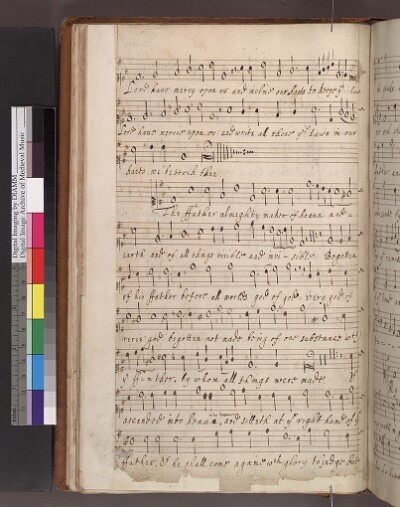 Lord haue mercy upon us and incline our harts to keepe yᵉ law
Lord haue mercie upon us and write all those yʳ lawes in our
harts we beseech thee
The ffather almighty maker of heaun and
earth and of all things visible and invi-sible Begotten
of his ffather before all worlds god of gods very god of
verie god begotten not made being of one substance wᵗʰ
yᵉ ffather, by whom all things were made
ascended into heaun, and sitteth at yᵉ right hand of yᵉ
ffather. & he shall come againe wᵗʰ glory to judge both
Digital Imaging by DIAMM
Digital Image Archive of Medieval Music